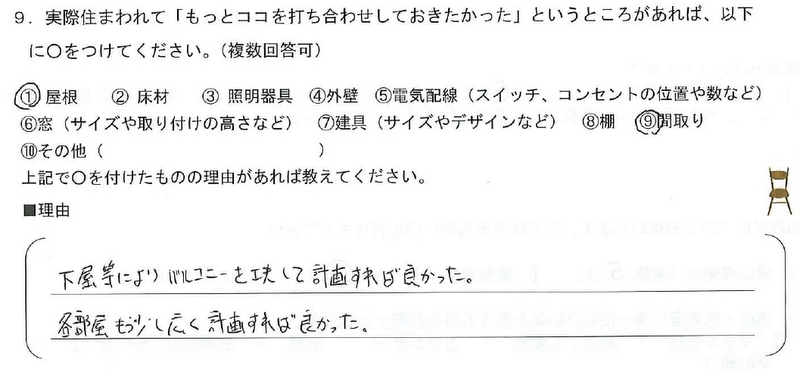 9．実際住まわれて「もっとココを打ち合わせしておきたかった」というところがあれば、以下
に〇をつけてください。（複数回答可）
① 屋根　② 床材　③ 照明器具　④外壁　⑤電気配線（スイッチ、コンセントの位置や数など）
⑥窓（サイズや取り付けの高さなど）　⑦建具（サイズやデザインなど）　⑧棚　⑨間取り
⑩その他（　　　　　　　　　　　　　）
上記で〇を付けたものの理由があれば教えてください。
■理由
下屋等によりバルコニーを工夫して計画すれば良かった。
各部屋もう少し広く計画すれば良かった。